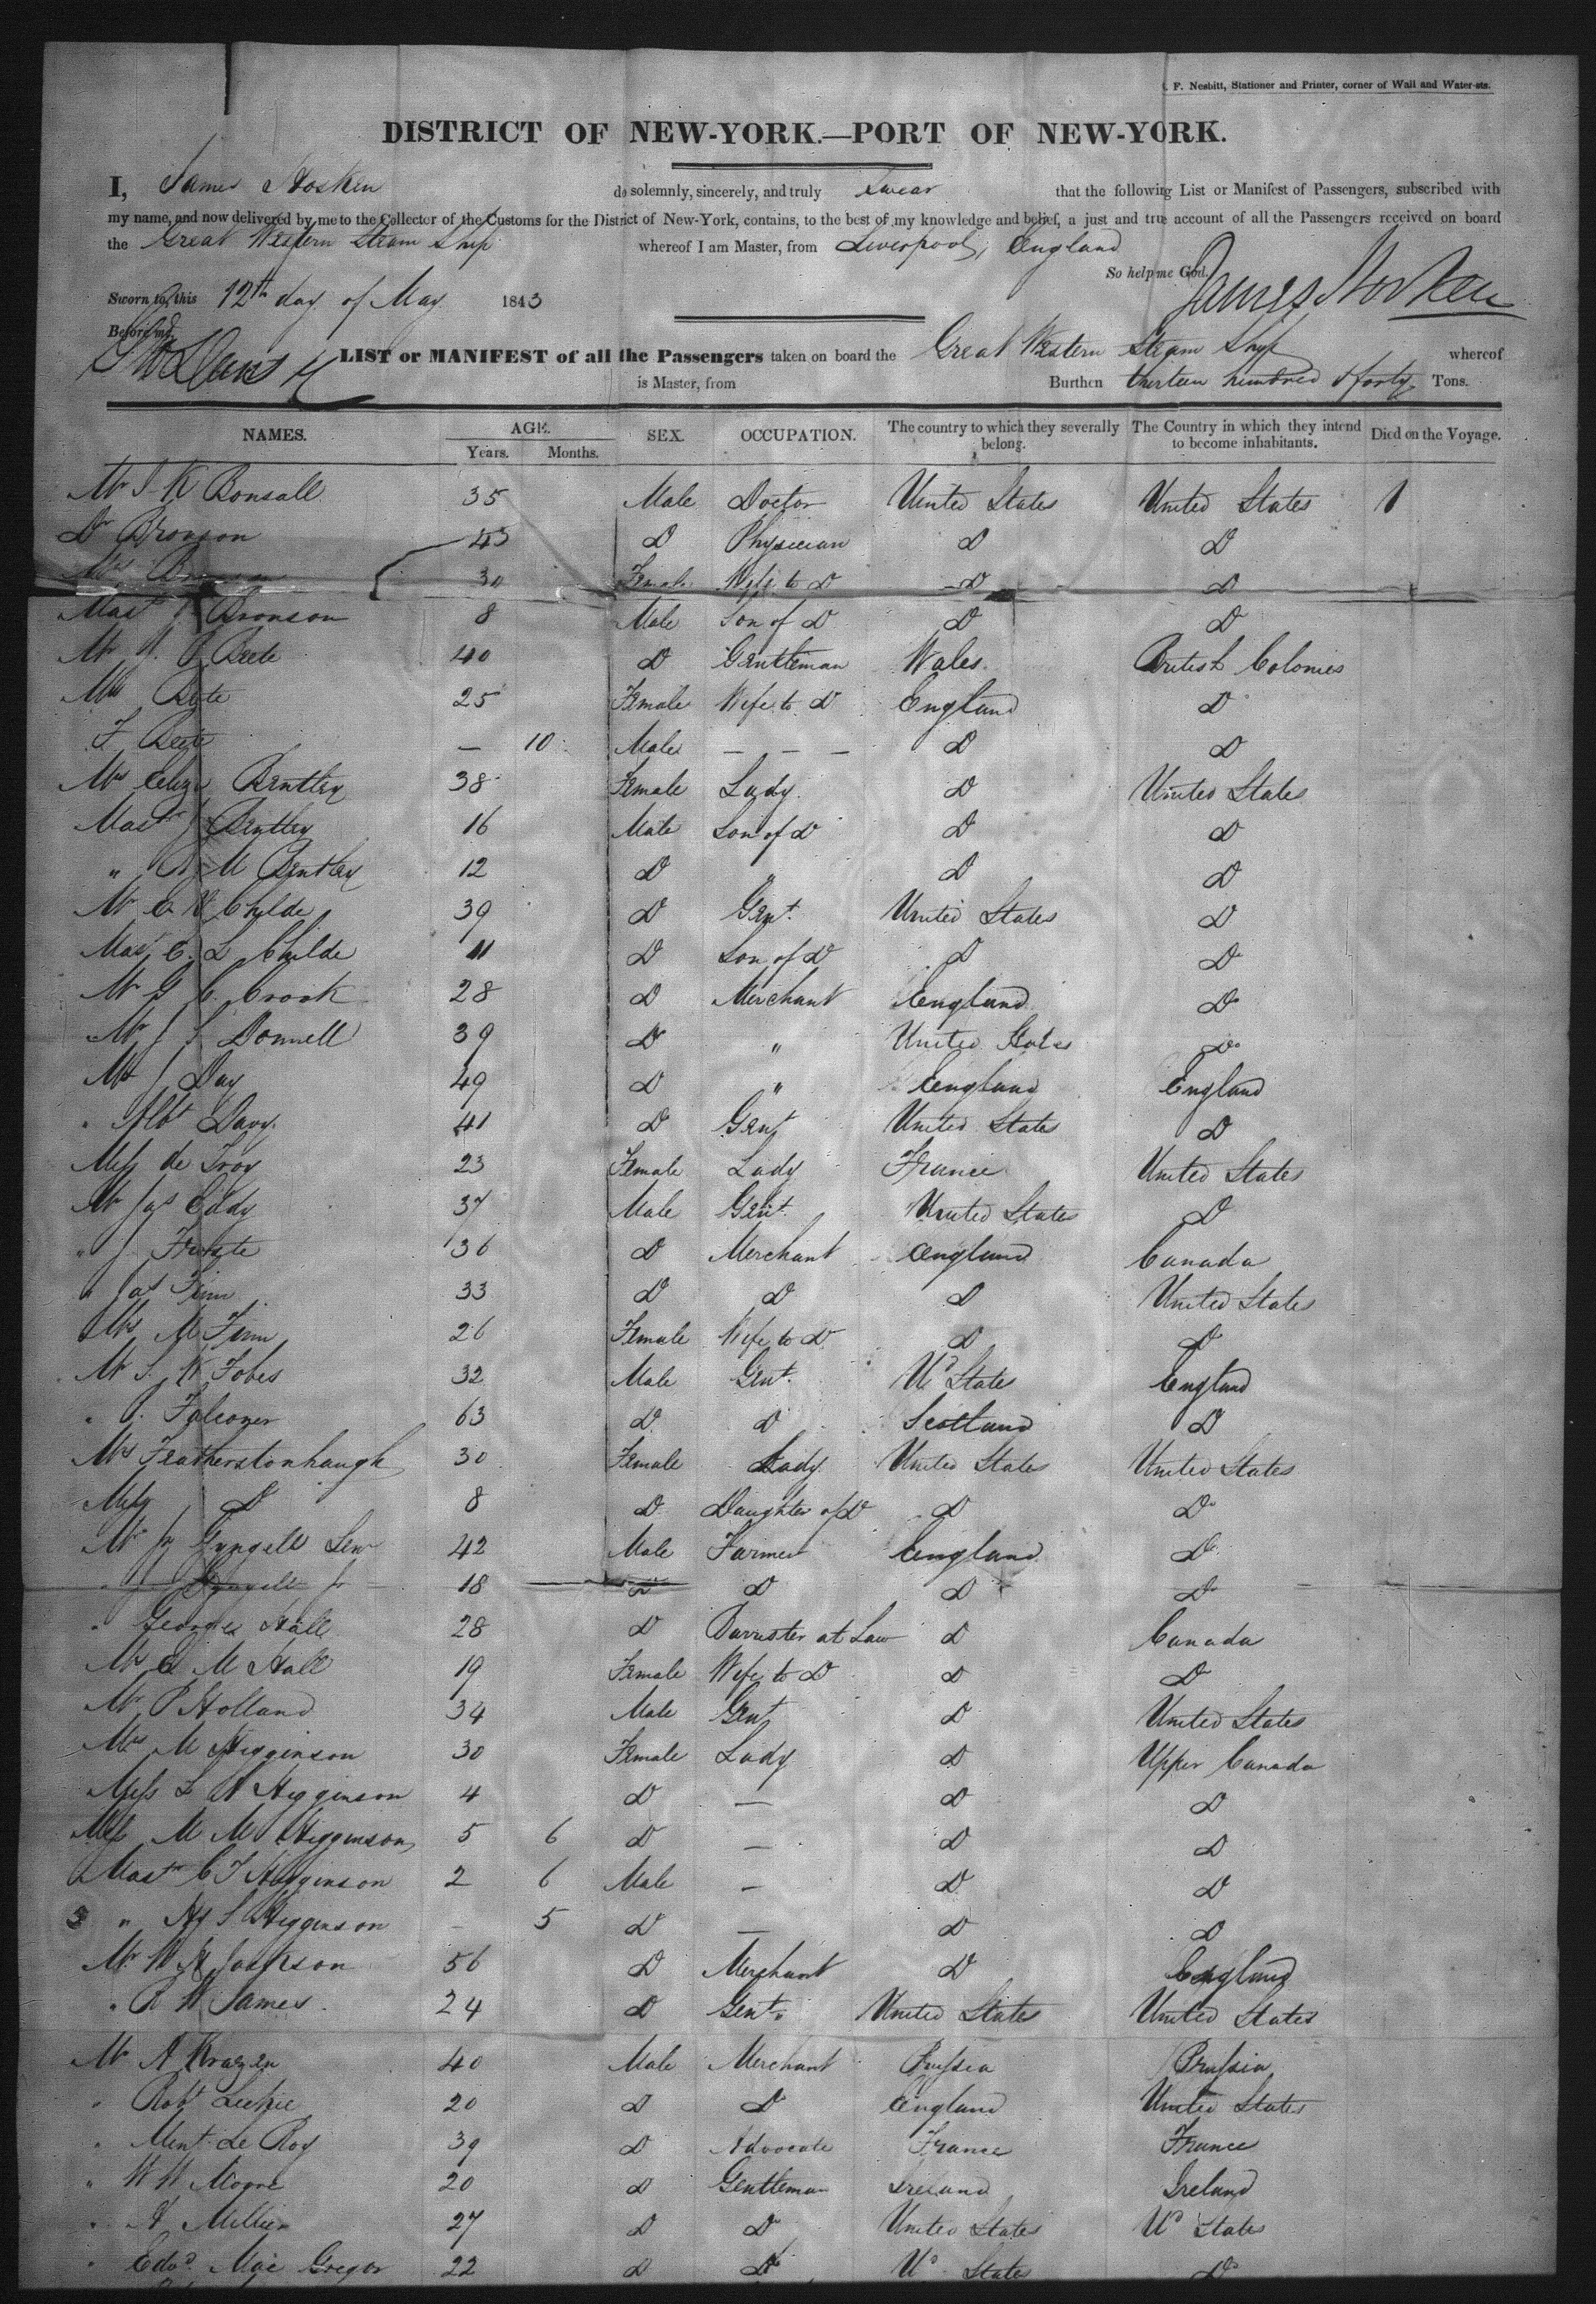 F. Nesbitt, Stationer and Printer, corner of Wall and Water-sts.
DISTRICT OF NEW-YORK.—PORT OF NEW-YORK.
I, James Hosken do solemnly, sincerely, and truly Swear that the following List or Manifest of Passengers, subscribed with
my name, and now delivered by me to the Collector of the Customs for the District of New-York, contains, to the best of my knowledge and belief, a just and true account of all the Passengers received on board
the Great Western Steam Ship whereof I am Master, from Liverpool, England
So help me God.
James Hosken
Sworn to, this 12th day of May 1843
Before me,
LIST or MANIFEST of all the Passengers taken on board the Great Western Steam Ship whereof
is Master, from Burthen thirteen hundred & forty Tons.
NAMES. AGE. Years. Months. SEX. OCCUPATION. The country to which they severally belong. The Country in which they intend to become inhabitants. Died on the Voyage.
Mr S. K Bonsall 35 Male Doctor United States United States 1
Dr Bronson 45 D Physician D D
Mrs Bronson 30 Female Wife to D D D
Mast Bronson 8 Male Son of D D D
Mr Beete 40 D Gentleman Wales British Colonies
Mrs Beete 25 Female Wife to D England D
F Beete — 10 Male — — — D D
Mrs Eliza Bentley 38 Female Lady D United States
Mast J Bentley 16 Male Son of D D D
" M Bentley 12 D " D D
Mr E Childe 39 D Gent. United States D
Mast C. L Childe 11 D Son of D D D
Mr G C. Crook 28 D Merchant England D
Mr J S Donnell 39 D " United States Do
Mr J Day 49 D " England England
" Albt Davy 41 D Gent United States D
Miss de Troy 23 Female Lady France United States
Mr Jas Eddy 37 Male Gent. United States D
" J 36 D Merchant England Canada
" Jas Finn 33 D D D United States
Mrs M Finn 26 Female Wife to D D D
Mr S. W Fobes 32 Male Gent. Ud States England
" P. Falconer 63 D D Scotland D
Mrs Featherstonhaugh 30 Female Lady United States United States
Miss D 8 D Daughter of D D Do
Mr Jn Gyngell Senr 42 Male Farmer England Do
" J Gyngell Jr 18 D D D Do
" George Hall 28 D Barrister at Law D Canada
Mrs E M Hall 19 Female Wife to D D D
Mr P Holland 34 Male Gent D United States
Mrs M Higginson 30 Female Lady D Upper Canada
Miss L A Higginson 4 D — D D
Miss M M Higginson 5 6 D — D D
Mast C T Higginson 2 6 Male — D D
" Hy S Higginson — 5 D — D D
Mr W H Jackson 56 D Merchant D England
" R W James 24 D Gent. United States United States
Mr A 40 Male Merchant Prussia Prussia
" Robt Leckie 20 D D England United States
" Le Roy 39 D Advocate France France
" W W Moore 20 D Gentleman Ireland Ireland
" A 27 D D United States Ud States
" Edwd Mac Gregor 22 D D Ud States Do